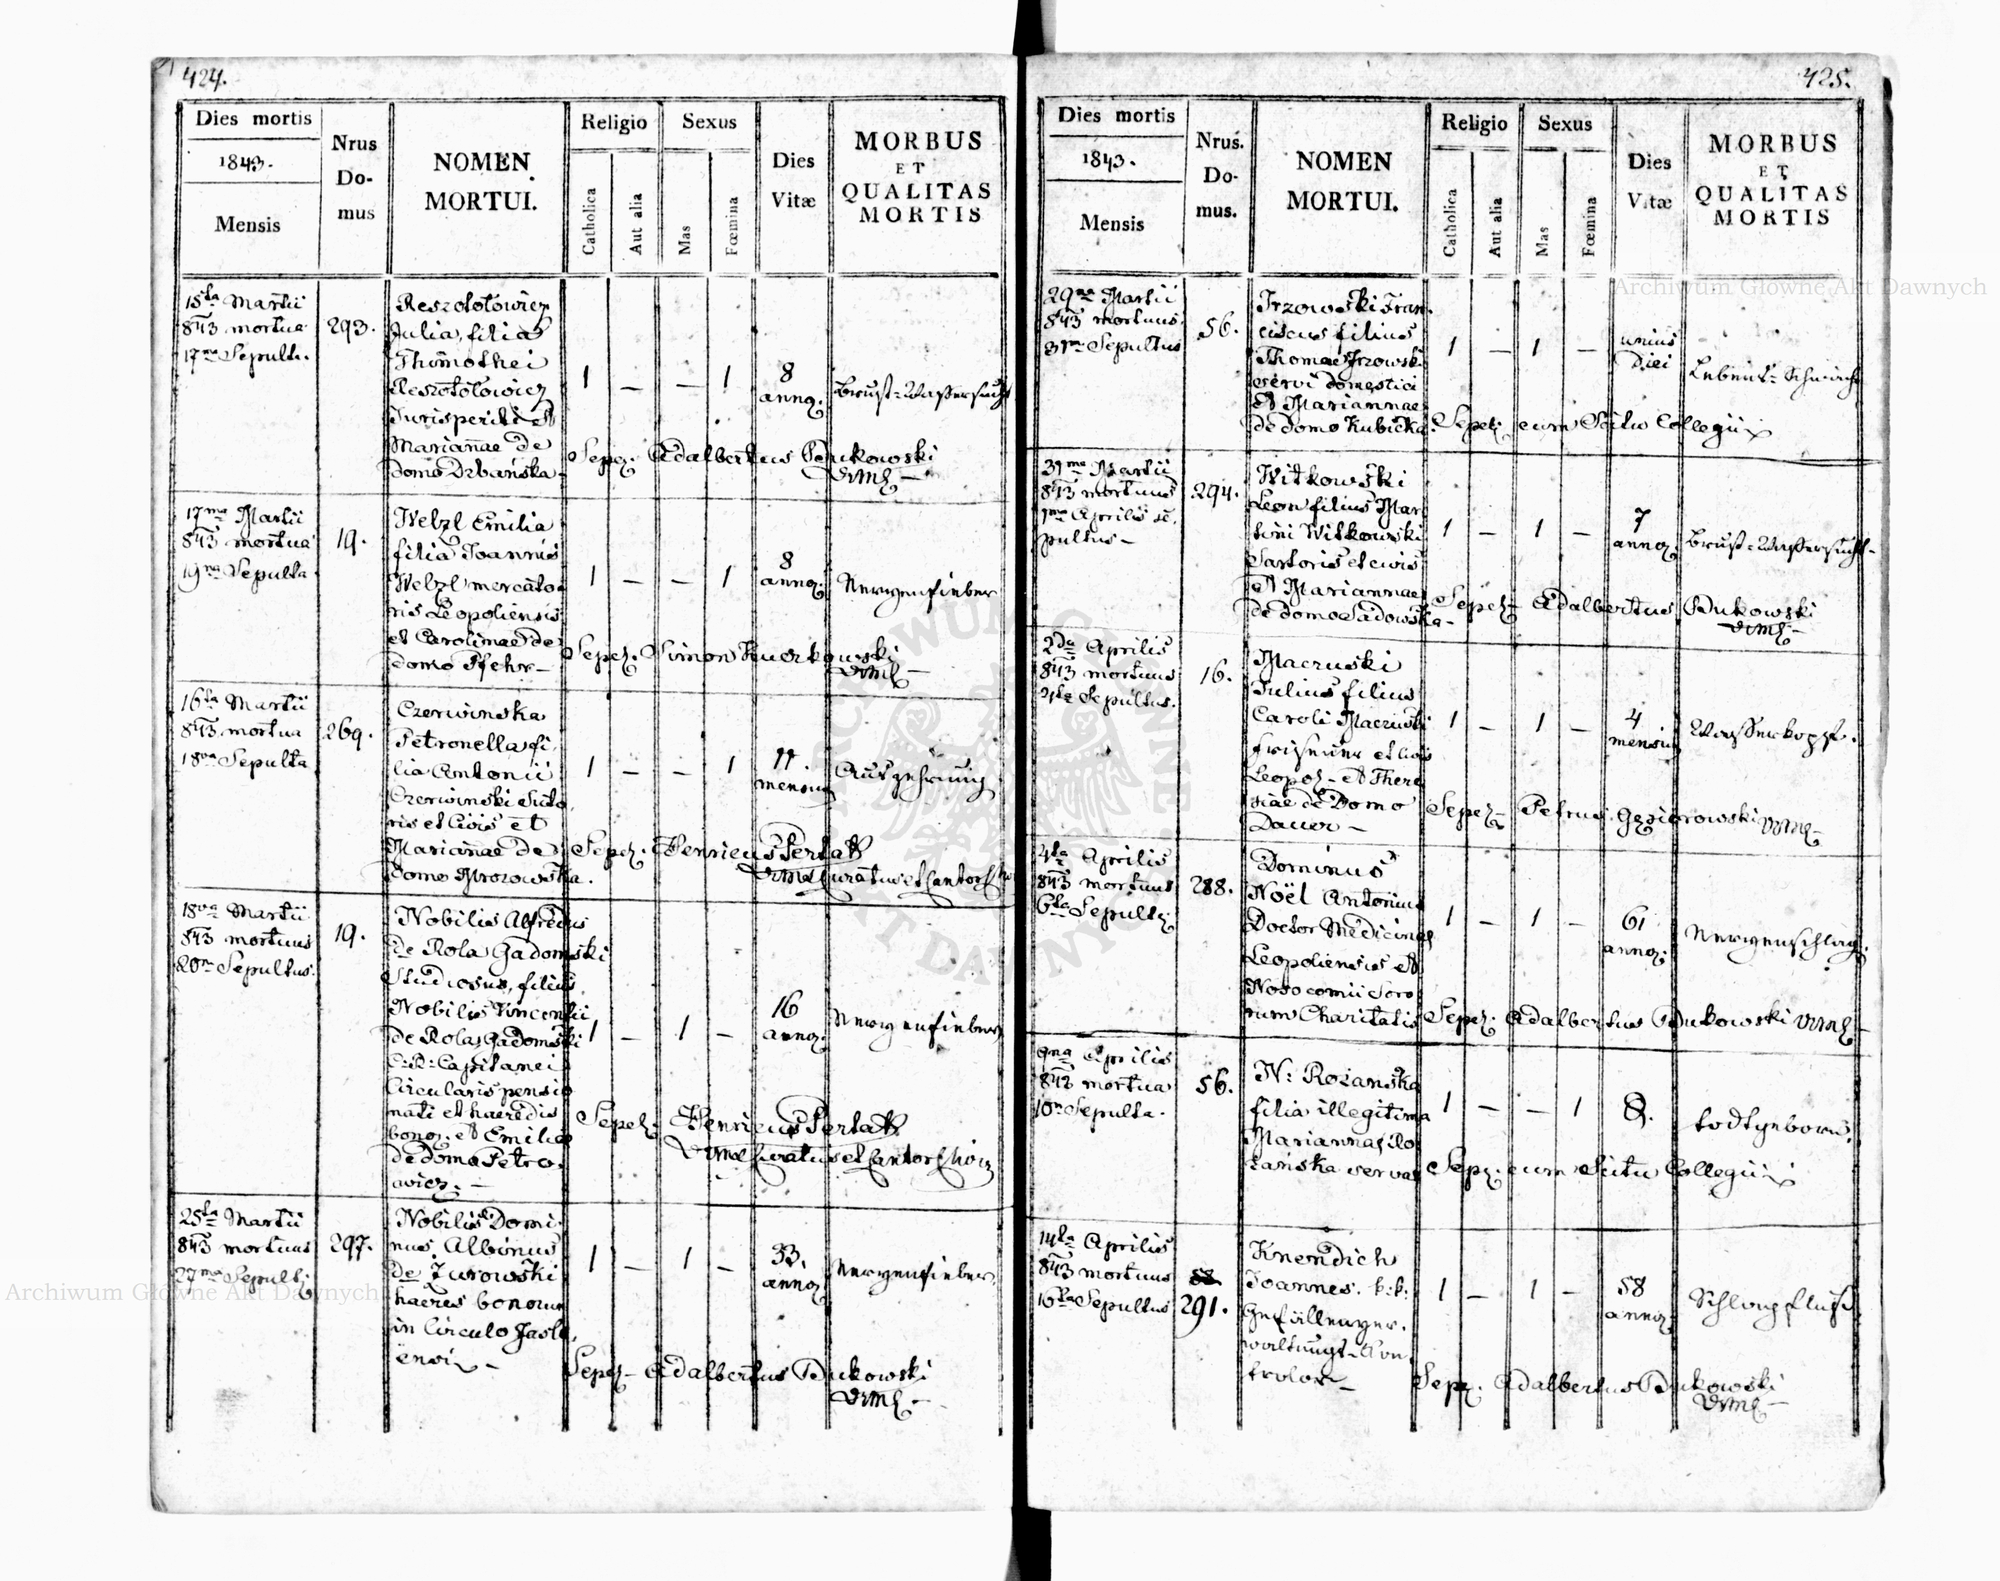 424.
Dies mortis
1843.
Mensis
Nrus
Do-
mus
NOMEN
MORTUI.
Religio
Catholica
Aut alia
Sexus
Mas
Fœmina
Dies
Vitæ
MORBUS
ET
QUALITAS
MORTIS
15ta Martii
843 mortua
17ma Sepult.
293.
Reszotołowicz
Julia, filia
Thimothei
Reszotołowicz
Jurisperiti et
Mariañae de
domo Drbańska
1 — — 1
8
annoꝝ.
Brust-Wassersucht
Sepel. Adalbertus Dukowski
17ma Martii
843 mortua
19na Sepulta
19.
Welzl Emilia
filia Joannis
Welzl mercato-
ris Leopoliensis
et Carolinae de
domo Pfehr—
1 — — 1
8
annoꝝ.
Nervenfieber
Sepel. Simon
16ta Martii
843 mortua
18va Sepulta
269.
Czerwinska
Petronella fi-
lia Antonii
Czerwinski Suto-
ris et Civis et
Mariañae de
domo Mrozowska.
1 — — 1
11.
mensiu
Auszehrung
Sepel. Henricus Pertak
Curatus et Cantor
18va Martii
843 mortuus
20ma Sepultus.
19.
Nobilis Alfredus
de Rola Gadomski
Studiosus, filius
Nobilis Vincentii
de Rola Gadomski
C: R: Capitanei
Circularis pensio
nati et haeredis
bonoꝝ. et Emiliae
de domo Petro-
wicz. —
1 — 1 —
16
annoꝝ.
Nervenfieber
Sepel. Henricus Pertak
Curatus et Cantor
25ta Martii
843 mortuus
27ma Sepult
297.
Nobilis Domi-
nus Albinus
de Jurowski
haeres bonorum
in Circulo Jasło-
ensi —
1 — 1 —
33.
annoꝝ
Nervenfieber.
Sepel— Adalbertus Dukowski
425.
Dies mortis
1843.
Mensis
Nrus.
Do-
mus.
NOMEN
MORTUI.
Religio
Catholica
Aut alia
Sexus
Mas
Fœmina
Dies
Vitæ
MORBUS
ET
QUALITAS
MORTIS
29na Martii
843 mortuus
31ma Sepultus
56.
Jrzowski Fran-
ciscus filius
Thomae Jrzowski
servi domestici
et Mariannae
de domo Kubicka.
1 — 1 —
unius
Diei
Lebens-Schwäche
Sepel. cum Scitu Collegii
31ma Martii
843 mortuus
1ma Aprilis se-
pultus—
294.
Witkowski
Leon filius Mar
tini Witkowski
Sartoris et civis
et Mariannae
de domo Sadowska—
1 — 1 —
7
annoꝝ
Brust-Wassersucht—
Sepel— Adalbertus Dukowski
2da Aprilis
843 mortuus
4ta Sepultus.
16.
Maczuski
Julius filius
Caroli Maczuski
Friseurer et civis
Leopol— et There
siae de Domo
Dauer—
1 — 1 —
4
mensiu
Wasserkopf.
Sepel— Petrus Gąsiorowski
4ta Aprilis
843 mortuus
6ta Sepult
288.
Dominus
Noël Antonius
Doctor Medicinae
Leopoliensis et
Nosocomii Soro
rum Charitatis
1 — 1 —
61
annoꝝ.
Nervenschlag.
Sepel. Adalbertus Dukowski
9na Aprilis
843 mortua
10ma Sepulta.
56.
N: Rożańska
filia illegitima
Mariannae Ro
zańska servae
1 — — 1
todtgeboren.
Sepel. cum Scitu Collegii
14ta Aprilis
843 mortuus
16ta Sepultus
291.
Knendich
Joannes. k: k:
Gefällenver-
waltungs-Con-
trolor—
1 — 1 —
58
annoꝝ.
Schlagfluß
Sepel. Adalbertus Dukowski
Archiwum Główne Akt Dawnych
Archiwum Główne Akt Dawnych
ARCHIWUM GŁÓWNE AKT DAWNYCH